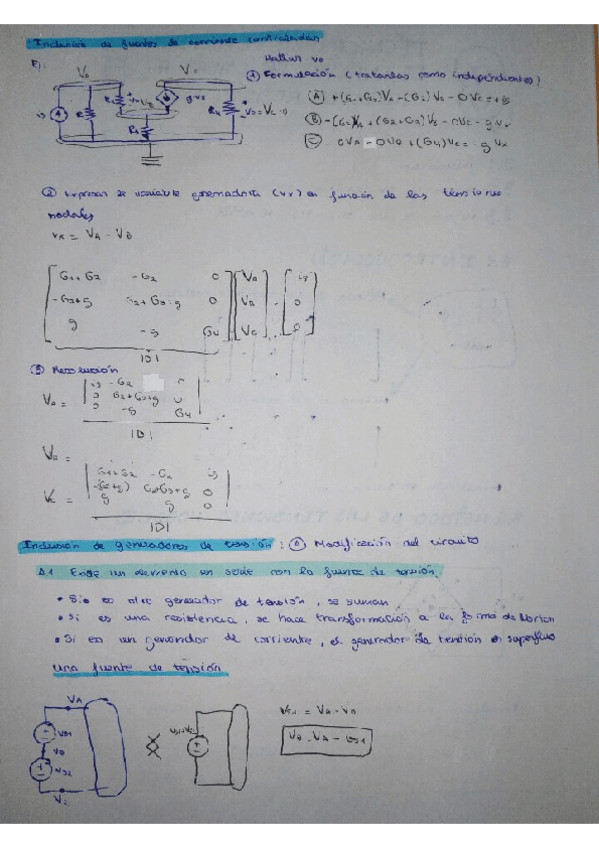 Inclusión de fuentes de corriente controladas
Ej: Hallar v0
① Formulación (tratarlas como independientes)
Ⓐ +(G1+G2)VA-(G2)VB-0VC=+is
Ⓑ -(G2)VA+(G2+G3)VB-0VC=-gvx
Ⓒ 0VA-0VB+(G4)VC=-gvx
VA VC
R4 VO=VC
② Expresar la variable generadora (vx) en función de las tensiones
nodales
vx = VA - VB
G1+G2 -G2 0 VA is
-G2+g G2+G3-g 0 VB 0
g -g G4 VC 0
|D|
③ Resolución
VA = is -G2 0
0 G2+G3-g 0
0 -g G4
|D|
VB =
VC = G1+G2 -G2 is
-(G2+g) G2+G3+g 0
g g 0
|D|
Inclusión de generadores de tensión: Ⓐ Modificación del circuito
A.1 Existe un elemento en serie con la fuente de tensión.
• Si es otro generador de tensión, se suman
• Si es una resistencia, se hace transformación a la forma de Norton
• Si es un generador de corriente, el generador de tensión es superfluo
una fuente de tensión
VA
VS1
VB
VS2
VC
VS1 = VA - VB
VB = VA - VS1